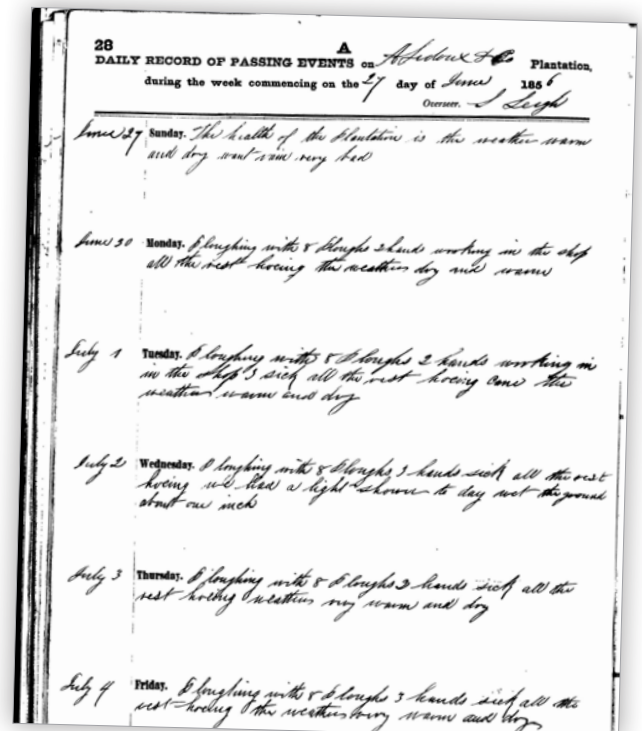 28
A
DAILY RECORD OF PASSING EVENTS on A Ledoux & Co Plantation,
during the week commencing on the 27 day of June 1856
Overseer. S Leigh
June 27 Sunday. The health of the Plantation is the weather warm
and dry want rain very bad
June 30 Monday. Ploughing with 8 Ploughs 2 hands working in the shop
all the rest hoeing the weather dry and warm
July 1 Tuesday. Ploughing with 8 Ploughs 2 hands working in
in the shop 3 sick all the rest hoeing cane the
weather warm and dry
July 2 Wednesday. Ploughing with 8 Ploughs 3 hands sick all the rest
hoeing we had a light shower to day wet the ground
about one inch
July 3 Thursday. Ploughing with 8 Ploughs 2 hands sick all the
rest hoeing weather very warm and dry
July 4 Friday. Ploughing with 8 Ploughs 3 hands sick all the
rest hoeing the weather very warm and dry